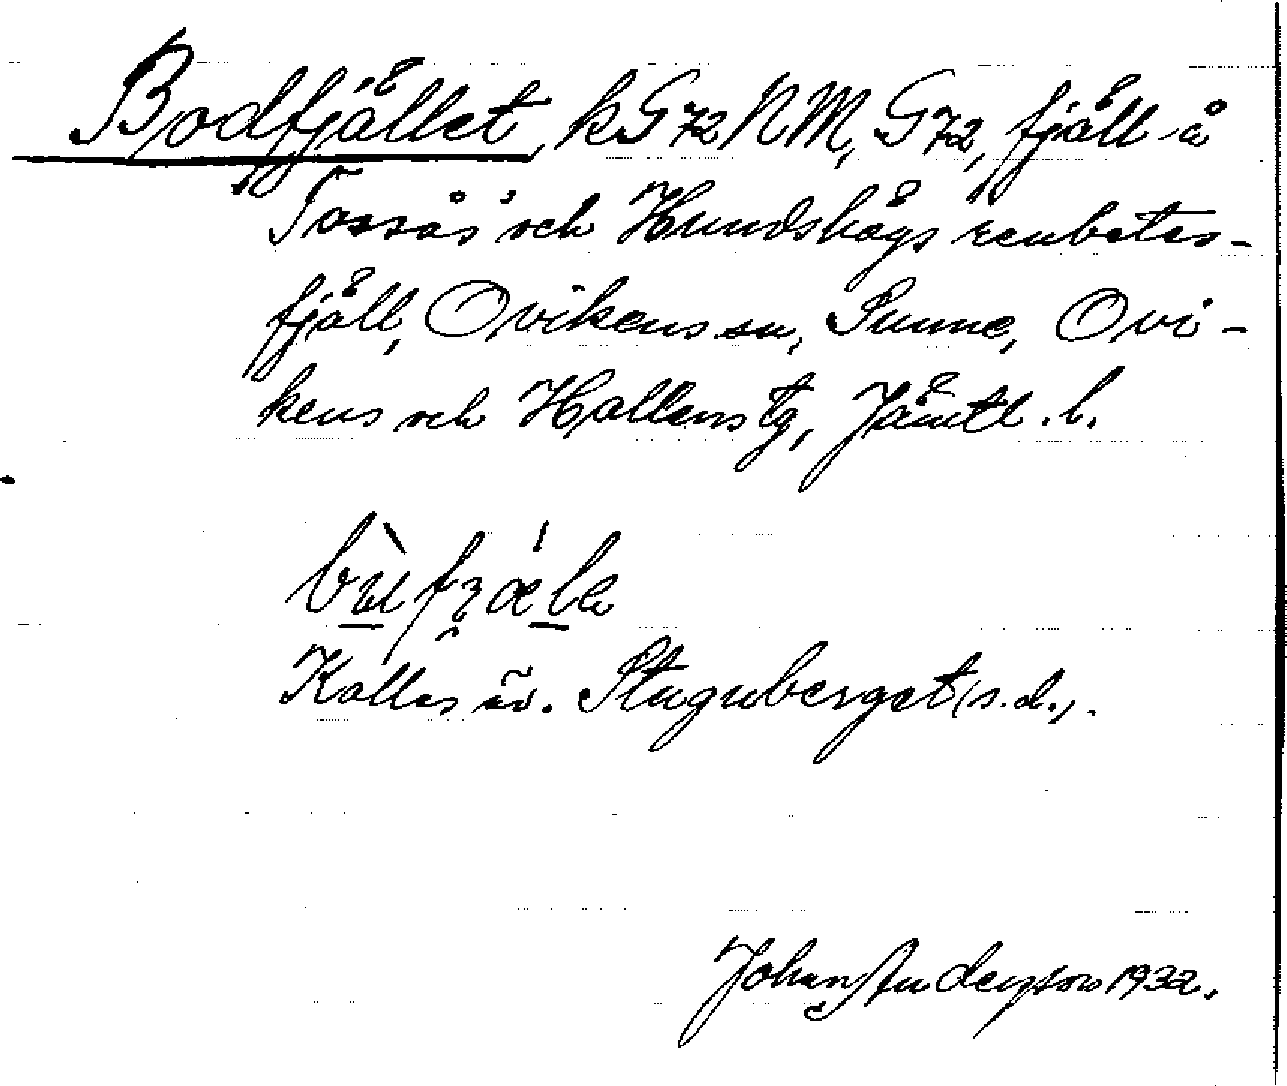 Bodfjället, kG72NM, G72, fjäll å
Tossås och Hundshögs renbetes-
fjäll, Ovikens sn, Sunne, Ovi-
kens och Hallens tg, Jämtl. l.
Kallas äv. Stuguberget (s.d.).
Johan Anderson 1932.